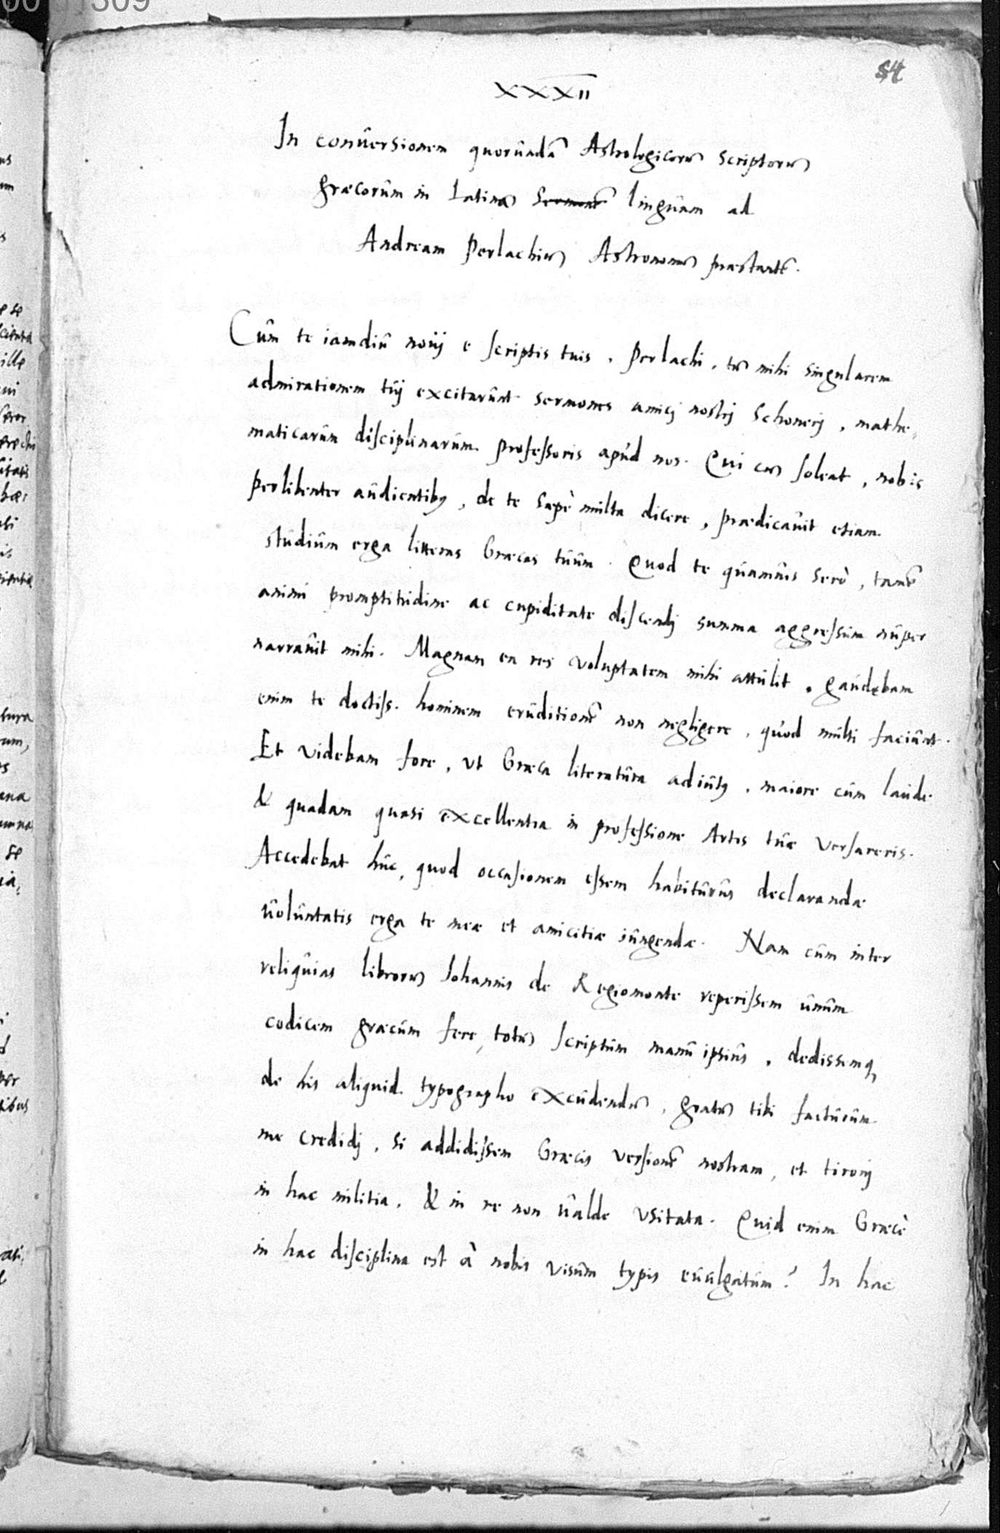 54
XXXII
In conuersionem quorundã Astrologicorũ scriptorũ
græcorum in Latinã linguam ad
Andream Perlachiũ Astronomũ præstantẽ.
Cum te iamdiu nouj e scriptis tuis, Perlachi, tũ mihi singularem
admirationem tuj excitarunt sermones amicj nostrj Schonerj, mathe,
maticarum disciplinarum professoris apud nos. Qui cũ soleat, nobis
perlibenter audientibus, de te sæpè multa dicere, prædicauit etiam
studium erga litteras Græcas tuum. Quod te quamuis serò, tamẽ
animi promptitudine ac cupiditate discendj summa aggressum nuper
narrauit mihi. Magnam ea res voluptatem mihi attulit, gaudebam
enim te doctiss. hominem eruditionẽ non negligere, quod multi faciunt.
Et videbam fore, vt Græca literatura adiutus, maiore cum laude
& quadam quasi excellentia in professione Artis tuæ versareris.
Accedebat huc, quod occasionem essem habiturus declarandæ
uoluntatis erga te meæ et amicitiæ iungendæ. Nam cum inter
reliquias librorũ Iohannis de Regiomonte reperissem unum
codicem græcum fere, totũ scriptum manu ipsius, dedissemq,
de his aliquid typographo excudendũ, gratũ tibi facturum
me credidj, si addidissem Græcis versionẽ nostram, et tironj
in hac militia, & in re non ualde vsitata. Quid enim Græcè
in hac disciplina est à nobis visum typis euulgatum? In hac